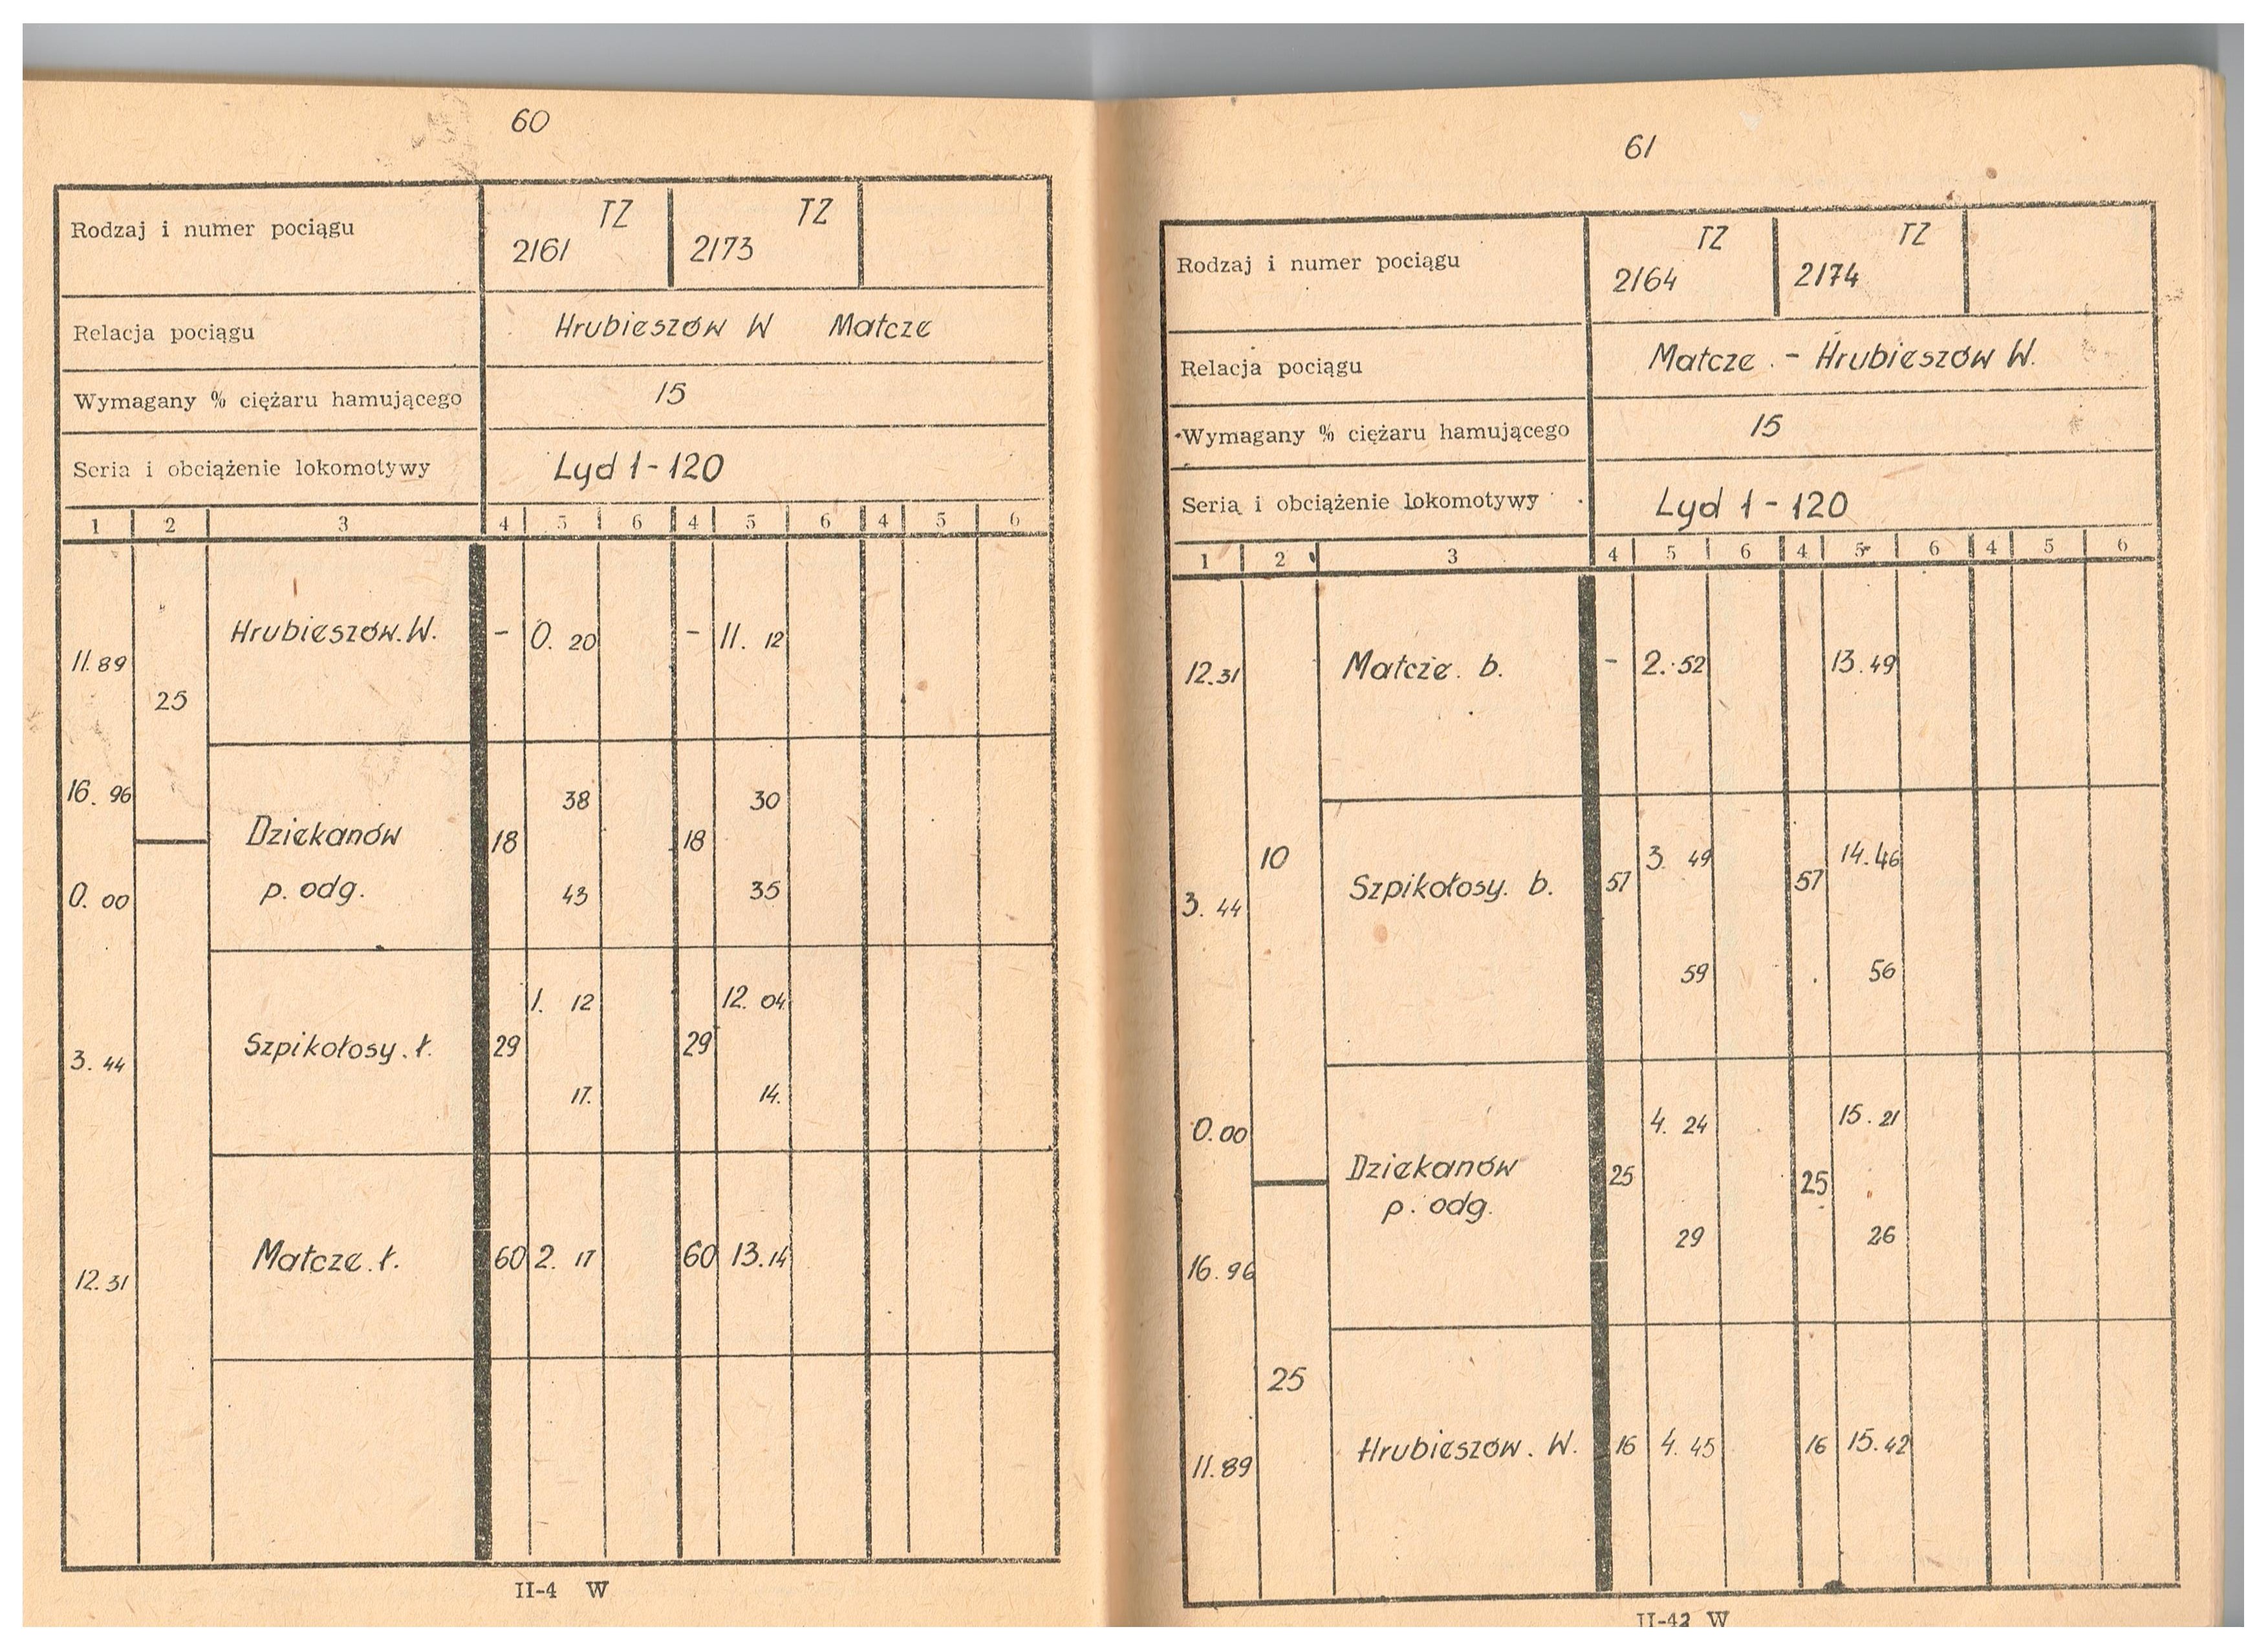 60
Rodzaj i numer pociągu TZ TZ
2161 2173
Relacja pociągu Hrubieszów W Matcze
Wymagany % ciężaru hamującego 15
Seria i obciążenie lokomotywy Lyd 1 - 120
1 2 3 4 5 6 4 5 6 4 5 6
Hrubieszów. W. - 0. 20 - 11. 12
11.89
25
16. 96 38 30
Dziekanów 18 18
0. 00 p. odg. 43 35
1. 12 12. 04
3. 44 Szpikołosy. ł. 29 29
17. 14.
Matcze. ł. 60 2. 17 60 13. 14
12. 31
II-4 W
61
Rodzaj i numer pociągu TZ TZ
2164 2174
Relacja pociągu Matcze - Hrubieszów W.
Wymagany % ciężaru hamującego 15
Seria i obciążenie lokomotywy Lyd 1 - 120
1 2 3 4 5 6 4 5 6 4 5 6
12.31 Matcze. b. - 2. 52 13. 49
10 3. 49 14. 46
3. 44 Szpikołosy. b. 57 57
59 56
0.00 4. 24 15. 21
Dziekanów 25 25
p. odg. 29 26
16. 96
25
11.89 Hrubieszów. W. 16 4. 45 16 15. 42
II-42 W